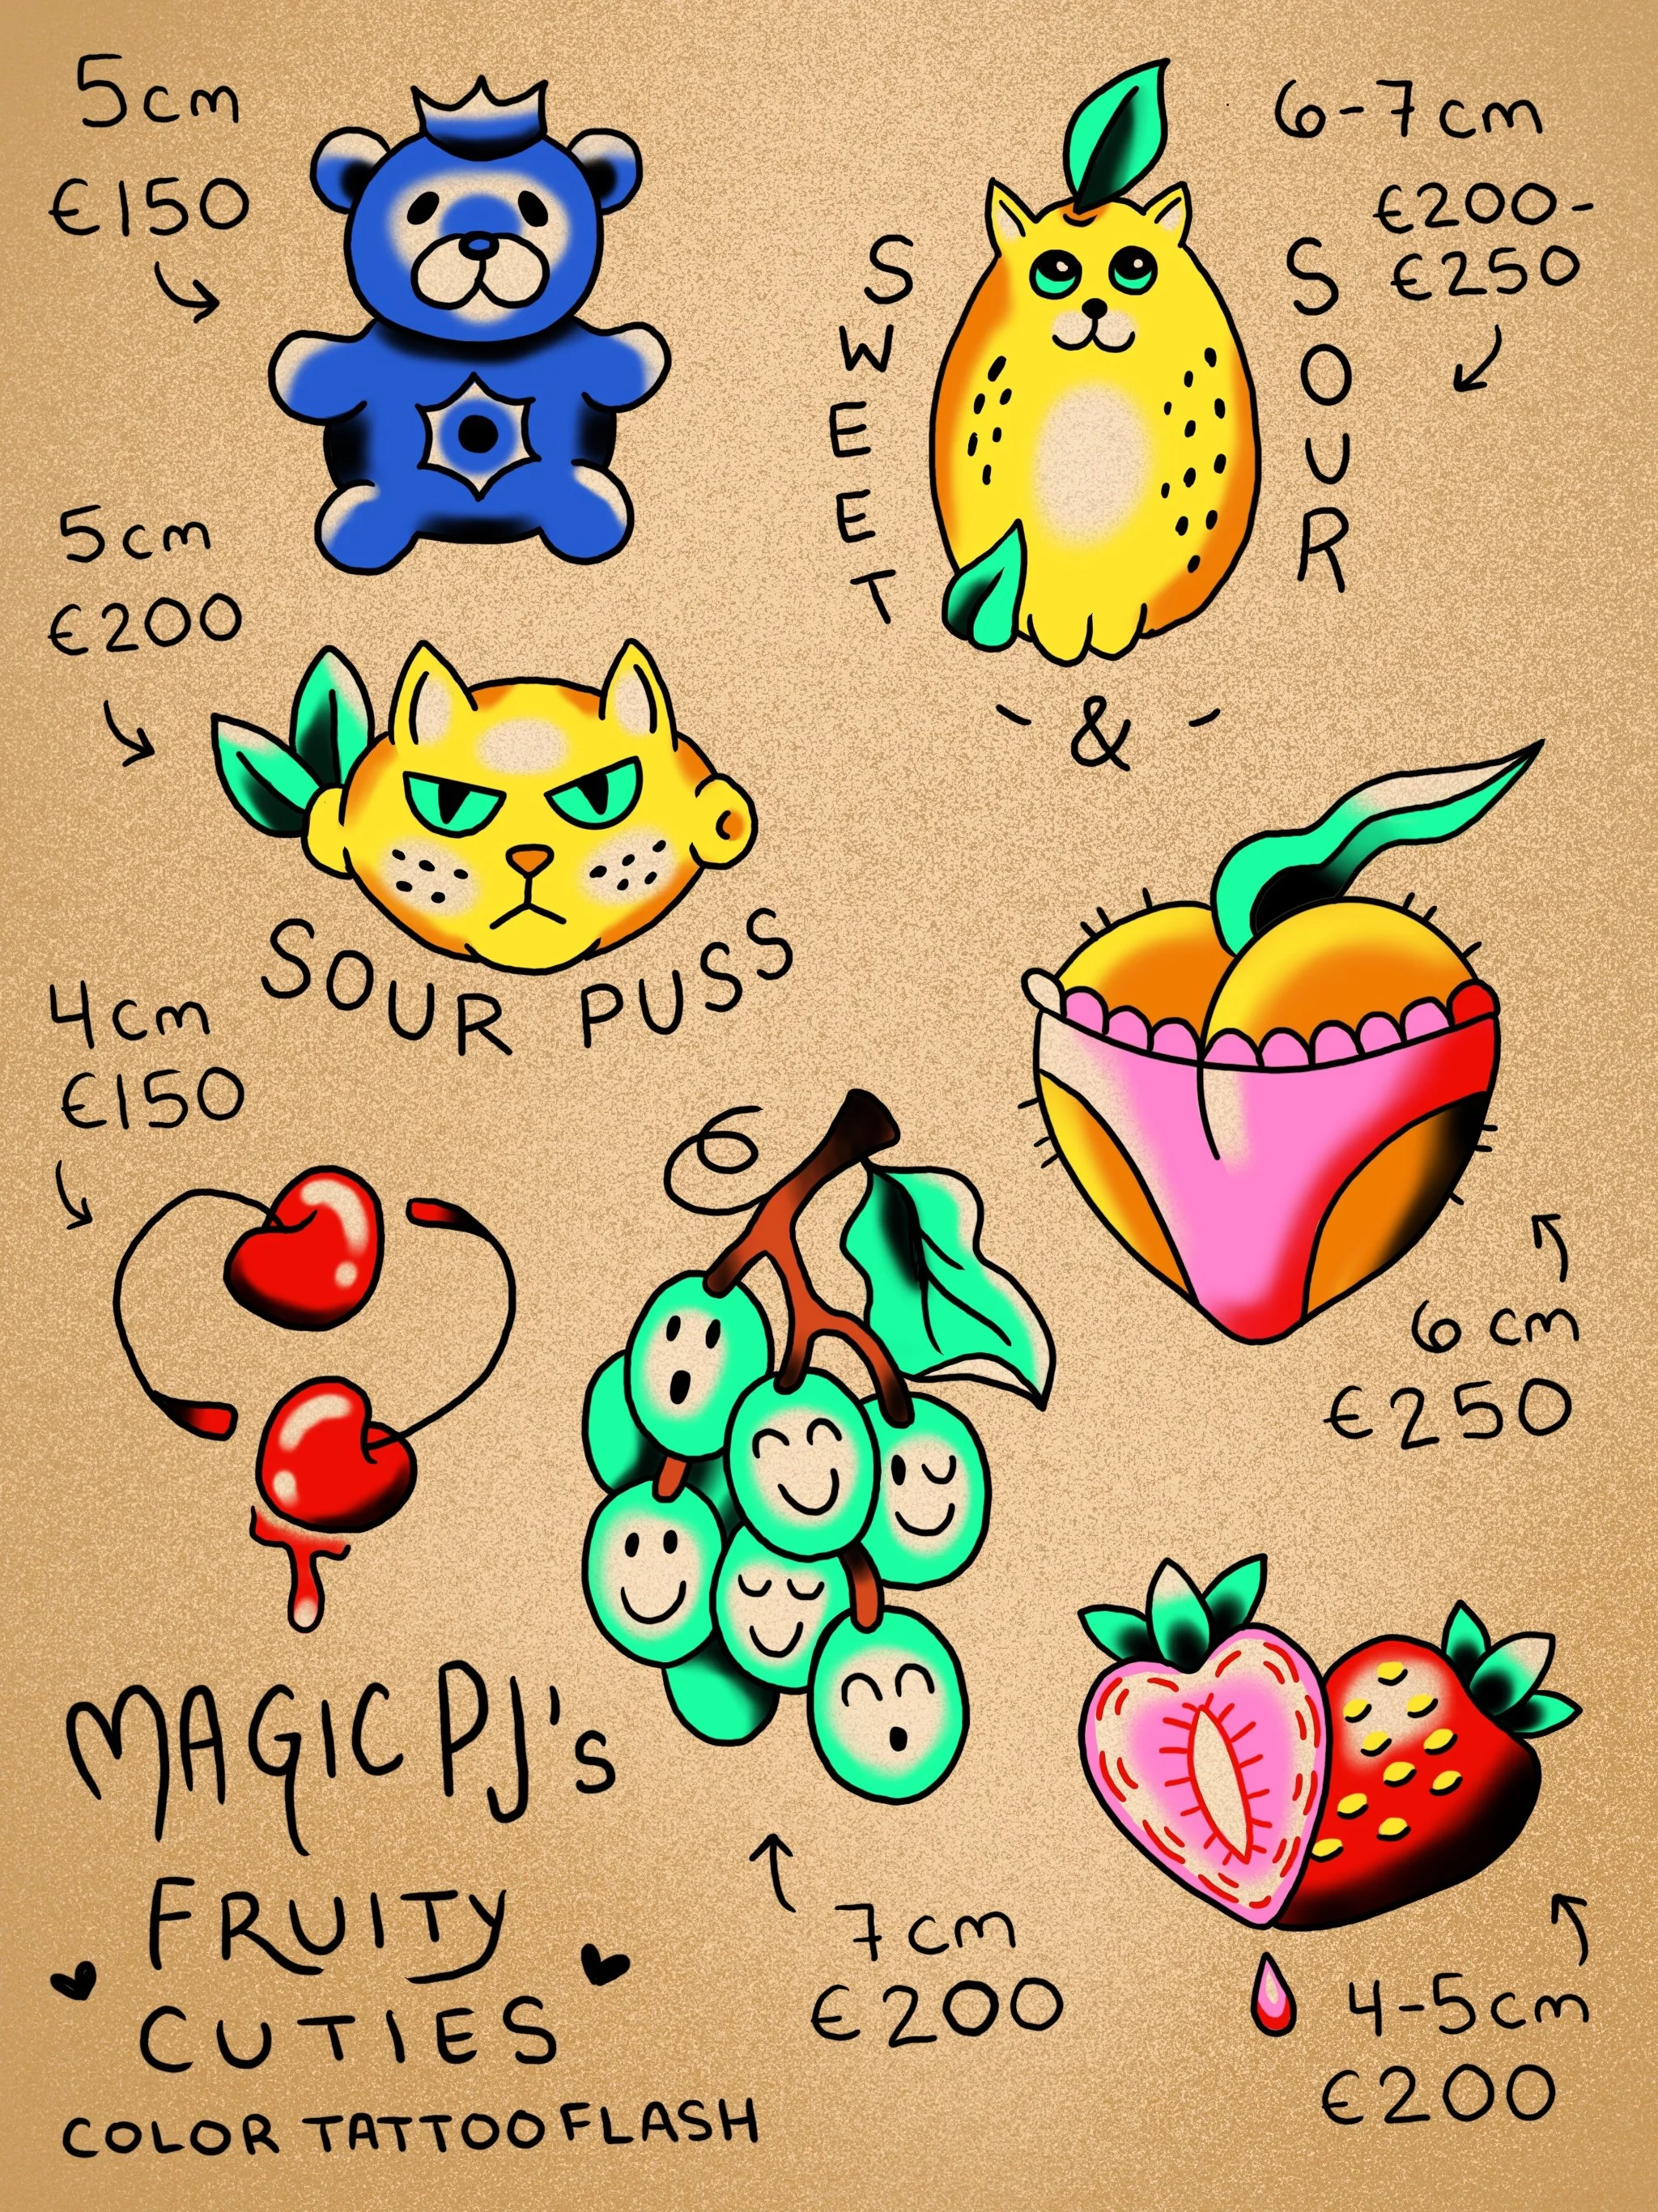 5cm
€150
6-7cm
€200-
€250
SWEET
SOUR
-&-
5cm
€200
SOUR PUSS
4cm
€150
6 cm
€250
MAGIC PJ's
FRUITY
CUTIES
COLOR TATTOO FLASH
7cm
€200
4-5cm
€200